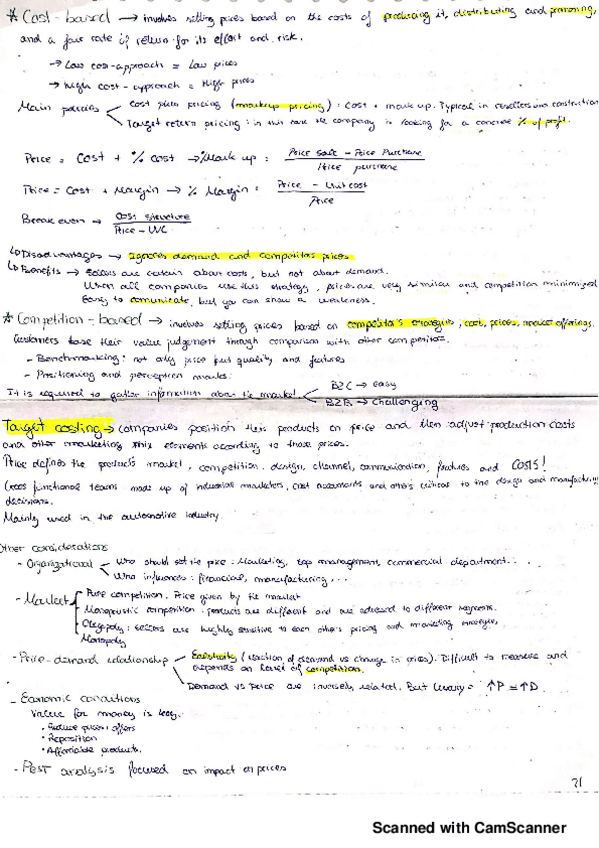 * Cost-based → involves setting prices based on the costs of producing it, distributing and promoting,
and a fair rate of return for its effort and risk.
→ Low cost-approach = Low prices
→ High cost-approach = High prices
Main policies
Cost plus pricing (markup pricing): Cost + mark up. Typical in resellers and construction
Target return pricing: in this case the company is looking for a concrete % of profit.
Price = Cost + % cost → % Mark up = Price Sale - Price Purchase
Price purchase
Price = Cost + Margin → % Margin = Price - Unit cost
Price
Break even → Cost structure
Price - UVC
↳ Disadvantages → ignores demand and competitors prices
↳ Benefits → Sellers are certain about costs, but not about demand.
When all companies use this strategy, prices are very similar and competition minimized
Easy to comunicate, but you can show a weakness.
* Competition-based → involves setting prices based on competitor's strategies, cost, prices, market offerings.
Customers base their value judgement through comparison with other competitors.
- Benchmarking: not only price but quality and features
- Positioning and perception
It is required to gather information about the market
B2C → easy
B2B → Challenging
Target costing → companies position their products on price and then adjust production costs
and other marketing mix elements according to those prices.
Price defines the products market, competition, design, channel, communication, features and COSTS!
Cross functional teams made up of industrial marketers, cost accountants and others critical to the design and manufacturing
decisions.
Mainly used in the automotive industry.
Other considerations
- Organizational
Who should set the price: Marketing, top management, commercial department...
Who influences: financial, manufacturing...
- Market
Pure competition. Price given by the market
Monopolistic competition: products are different and are adressed to different segments.
Oligopoly: sellers are highly sensitive to each other's pricing and marketing strategies,
Monopoly
- Price-demand relationship
Elasticity (reaction of demand vs change in prices). Difficult to measure and
depends on level of competition.
Demand vs Price are inversely related. But luxury = ↑P = ↑D
- Economic conditions
Value for money is key.
· Reduce prices: offers
· Reposition
· Affordable products.
- Post analysis focused on impact on prices
21
Scanned with CamScanner